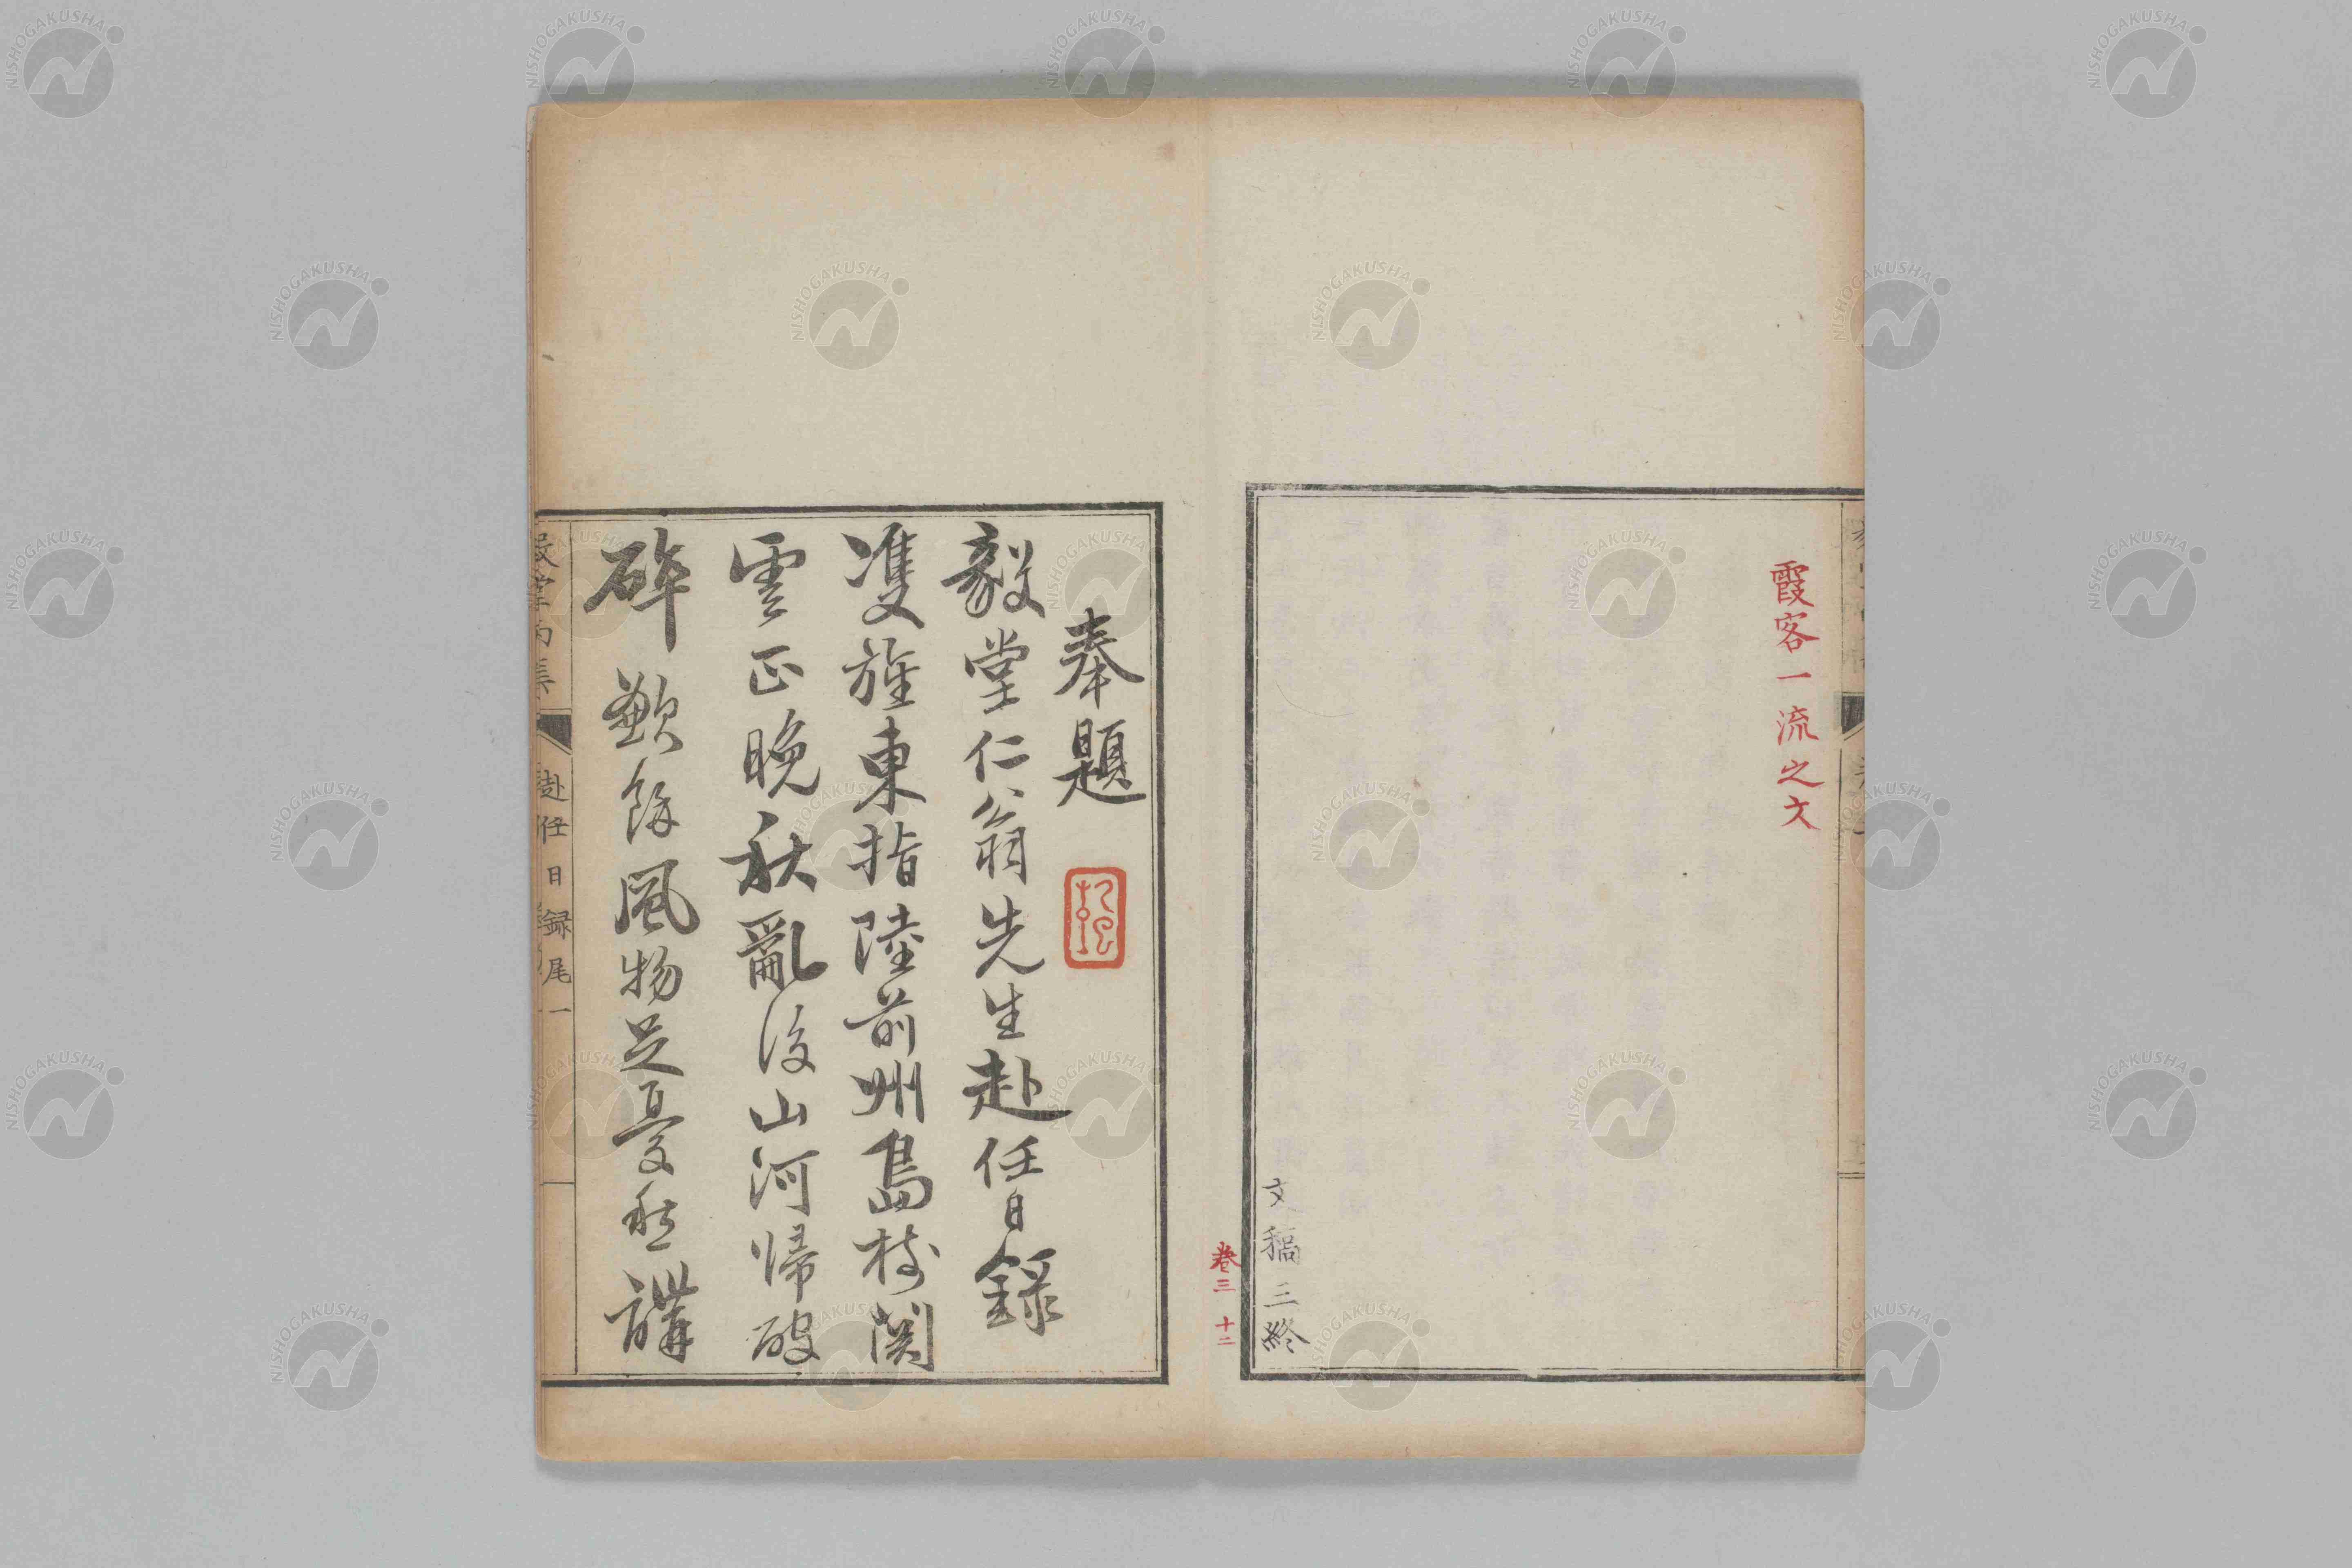 霞客一流之文
文稿三終
卷三 十二
奉題
毅堂仁翁先生赴任日録
雙旌東指陸前州島樹関
雲正晩秋亂後山河帰破
碎歉餘風物足憂愁講
毅堂丙集
赴任日録尾一
NISHOGAKUSHA